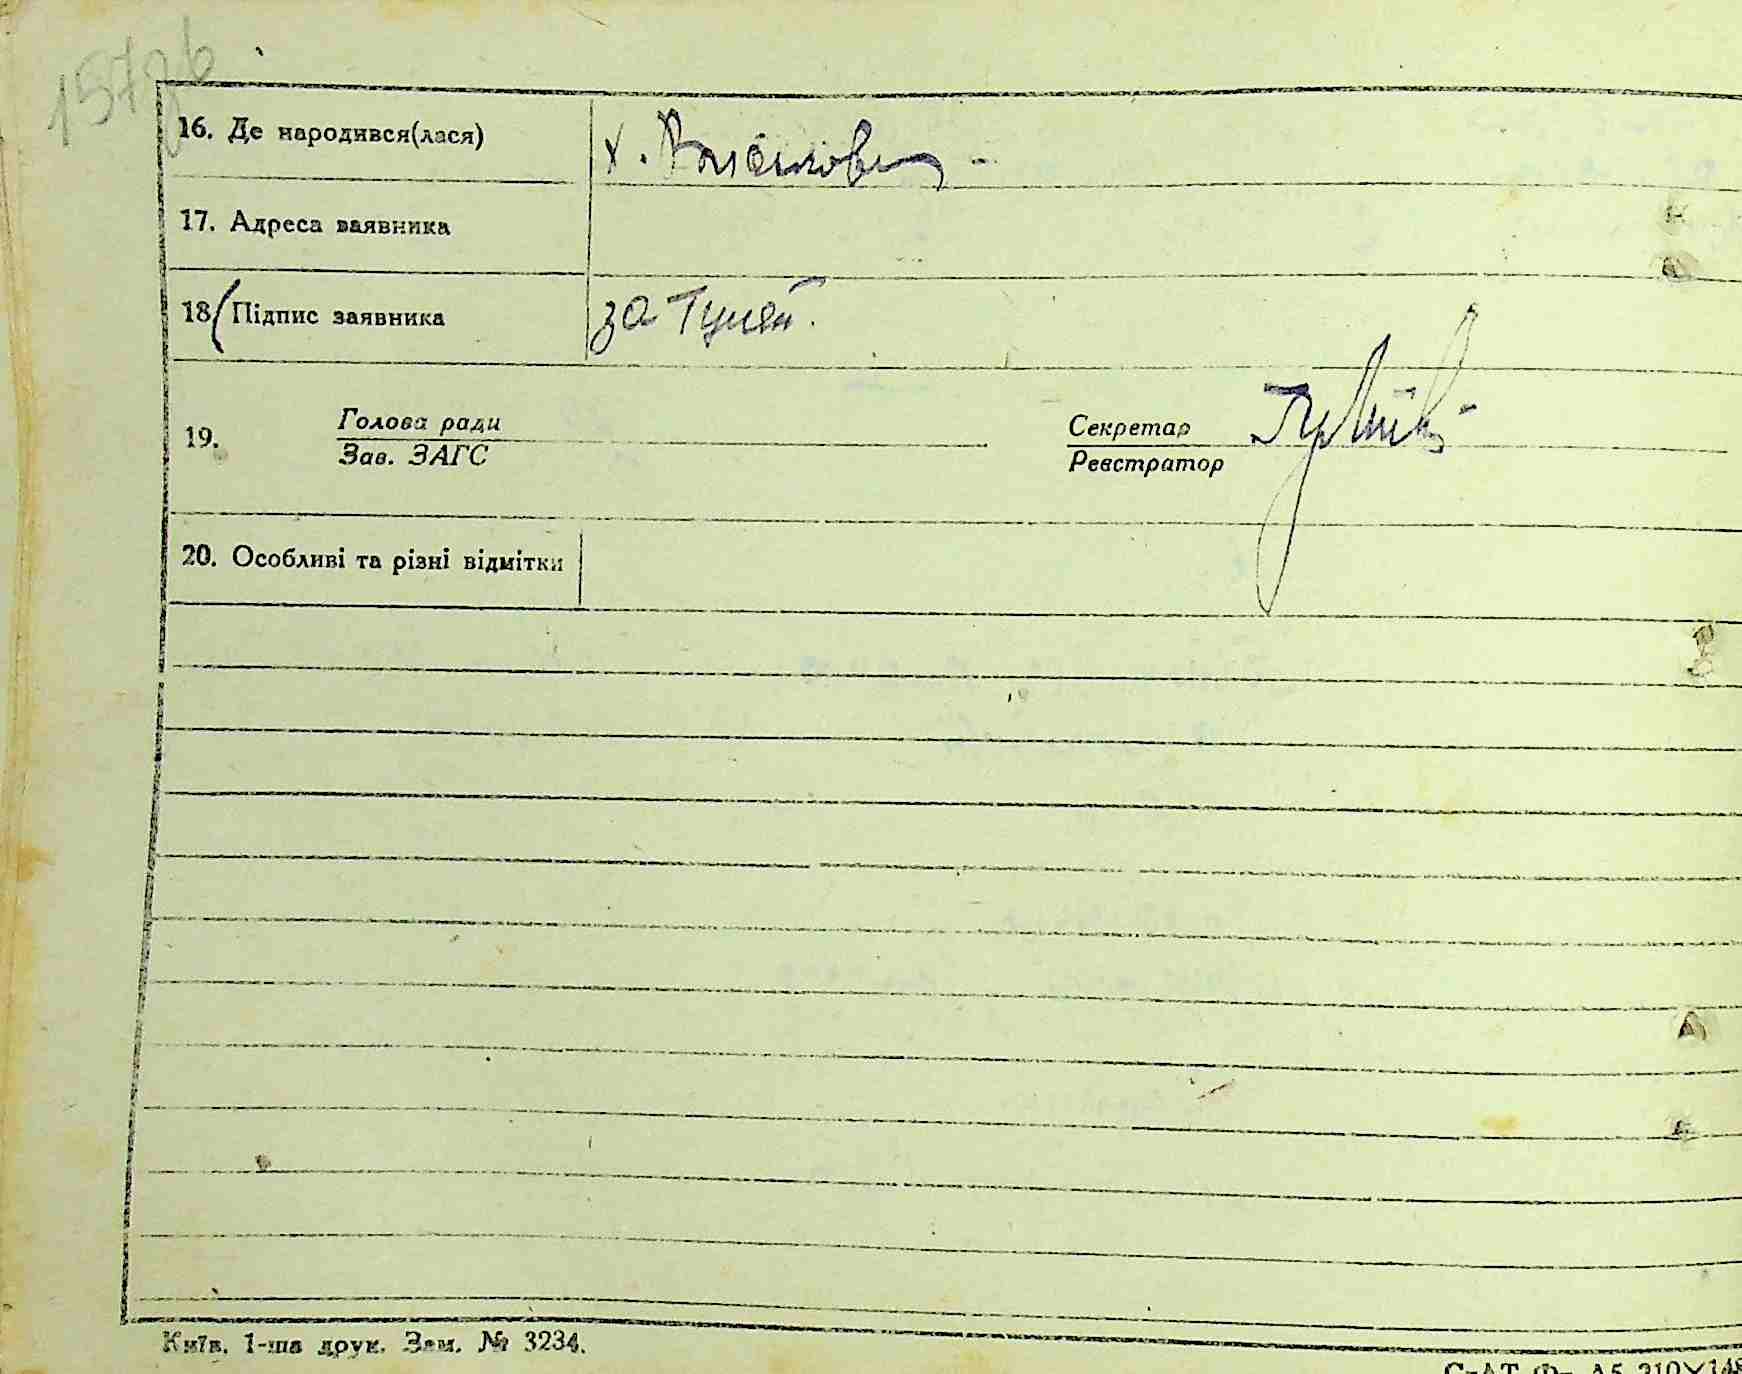 157зв
16. Де народився(лася)
х.
17. Адреса заявника
18 Підпис заявника
за
19.
Голова ради
Зав. ЗАГС
Секретар
Реєстратор
20. Особливі та різні відмітки
Київ. 1-ша друк. Зам. № 3234.
СтАТ Фп А5 210×148